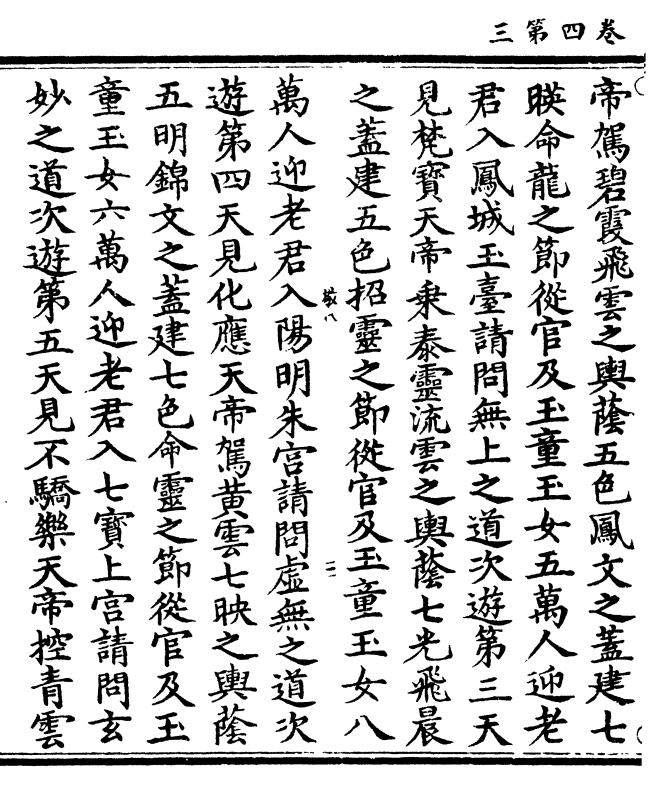 三第四卷
帝駕碧霞飛雲之輿蔭五色鳳文之蓋建七
暎命龍之節從官及玉童玉女五萬人迎老
君入鳳城玉臺請問無上之道次遊第三天
見梵寶天帝乘泰靈流雲之輿蔭七光飛晨
之蓋建五色招靈之節從官及玉童玉女八
敬八
二
萬人迎老君入陽明朱宮請問虛無之道次
遊第四天見化應天帝駕黃雲七映之輿蔭
五明錦文之蓋建七色命靈之節從官及玉
童玉女六萬人迎老君入七寶上宮請問玄
妙之道次遊第五天見不驕樂天帝控青雲